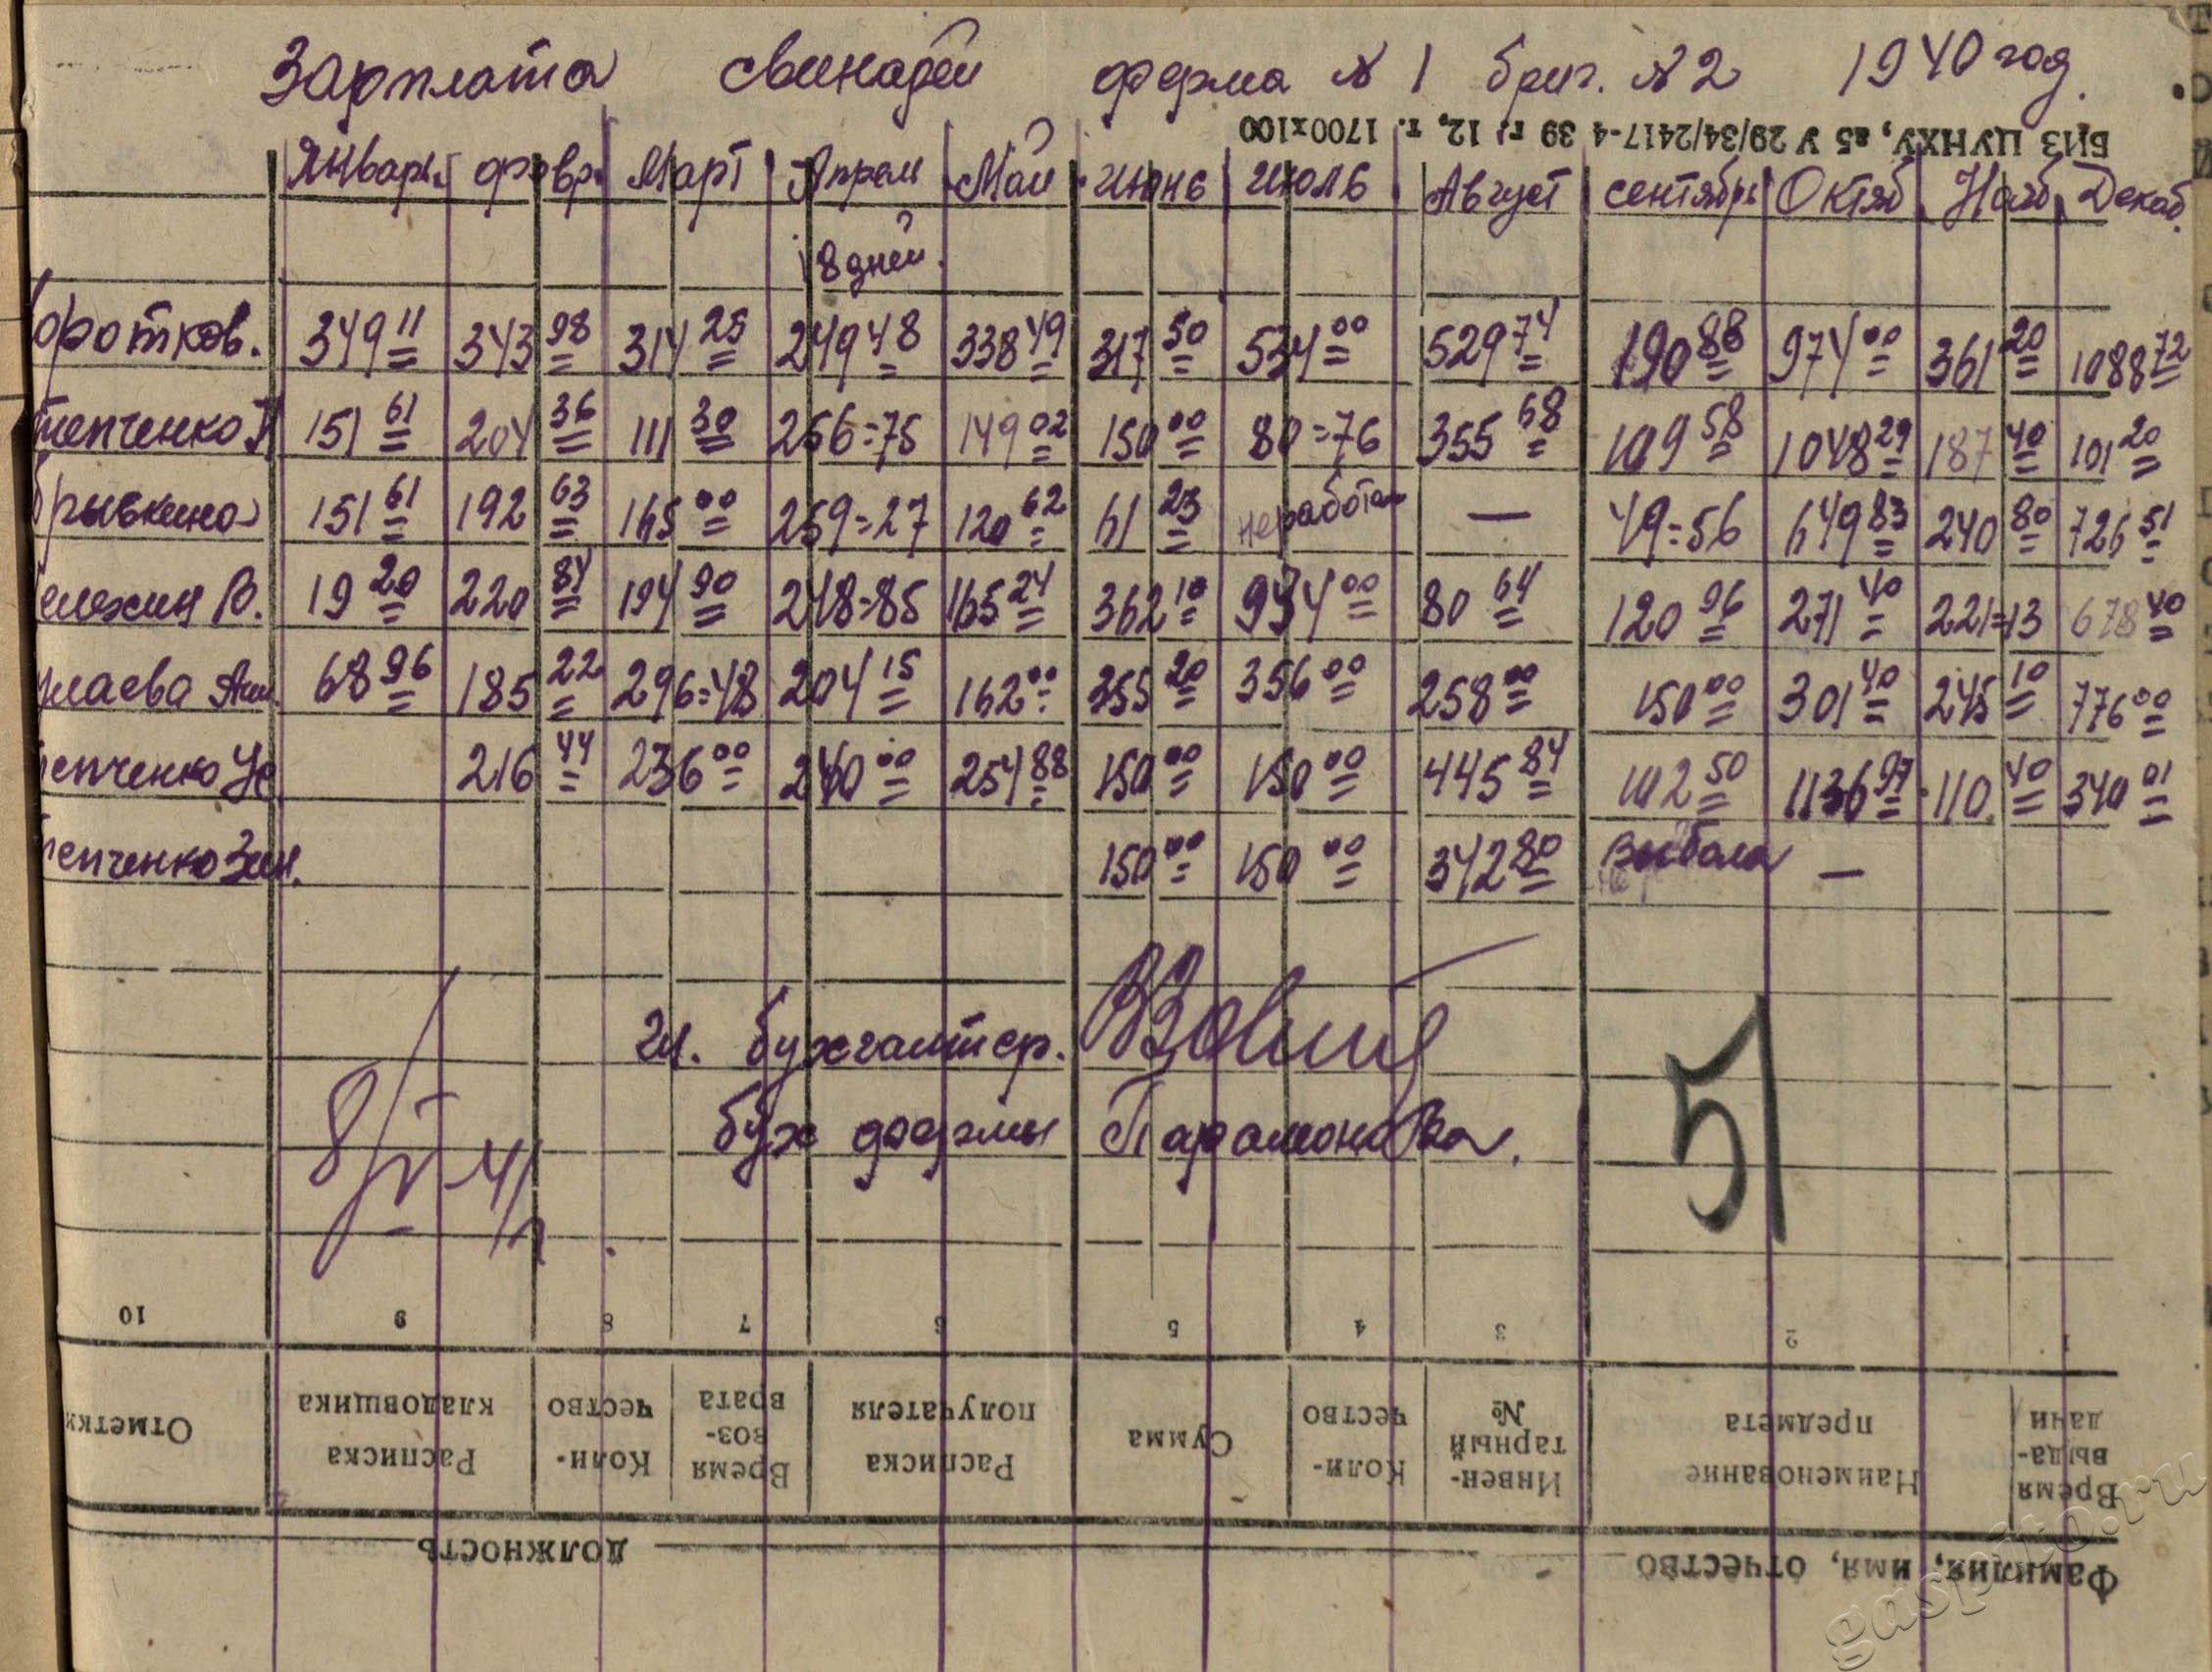 Зарплата свинарей ферма № 1 бриг. № 2 1940 год.
БИЗ ЦУНХУ, в5 У 29/34/2417-4 39 г. 12, т. 1700х100
Январь. февр. Март Апрель Май Июнь Июль Август сентябрь Октяб. Нояб. Декаб.
18 дней.
оротков. 349 11 343 98 314 25 249 48 338 49 317 50 534 00 529 74 190 88 974 00 361 20 1088 72
тепченко 151 61 204 36 111 30 256=75 149 02 150 00 80=76 355 68 109 58 1048 29 187 40 101 20
брывкина 151 61 192 63 165 00 259=27 120 62 61 23 неработал — 49=56 649 83 240 80 726 51
В. 19 20 220 84 194 90 248=85 165 24 362 10 934 00 80 64 120 96 271 40 221=13 678 40
лаева 68 96 185 22 296=48 204 15 162 00 355 20 356 00 258 00 150 00 301 40 245 10 776 00
тепченко Ус 216 44 236 00 240 00 254 88 150 00 150 00 445 84 102 50 1136 97 110 40 340 01
тепченко Зин. 150 00 150 00 342 80 выбыла —
Гл. бухгалтер.
бух фермы Парамонова.
8/IV-41
51
10 9 8 7 6 5 4 3 2 1
Отметки
Расписка кладовщика
Коли-чество
Время воз-врата
Расписка получателя
Сумма
Коли-чество
Инвен-тарный №
Наименование предмета
Время выда-дачи
должность
Фамилия, имя, отчество
gaspito.ru